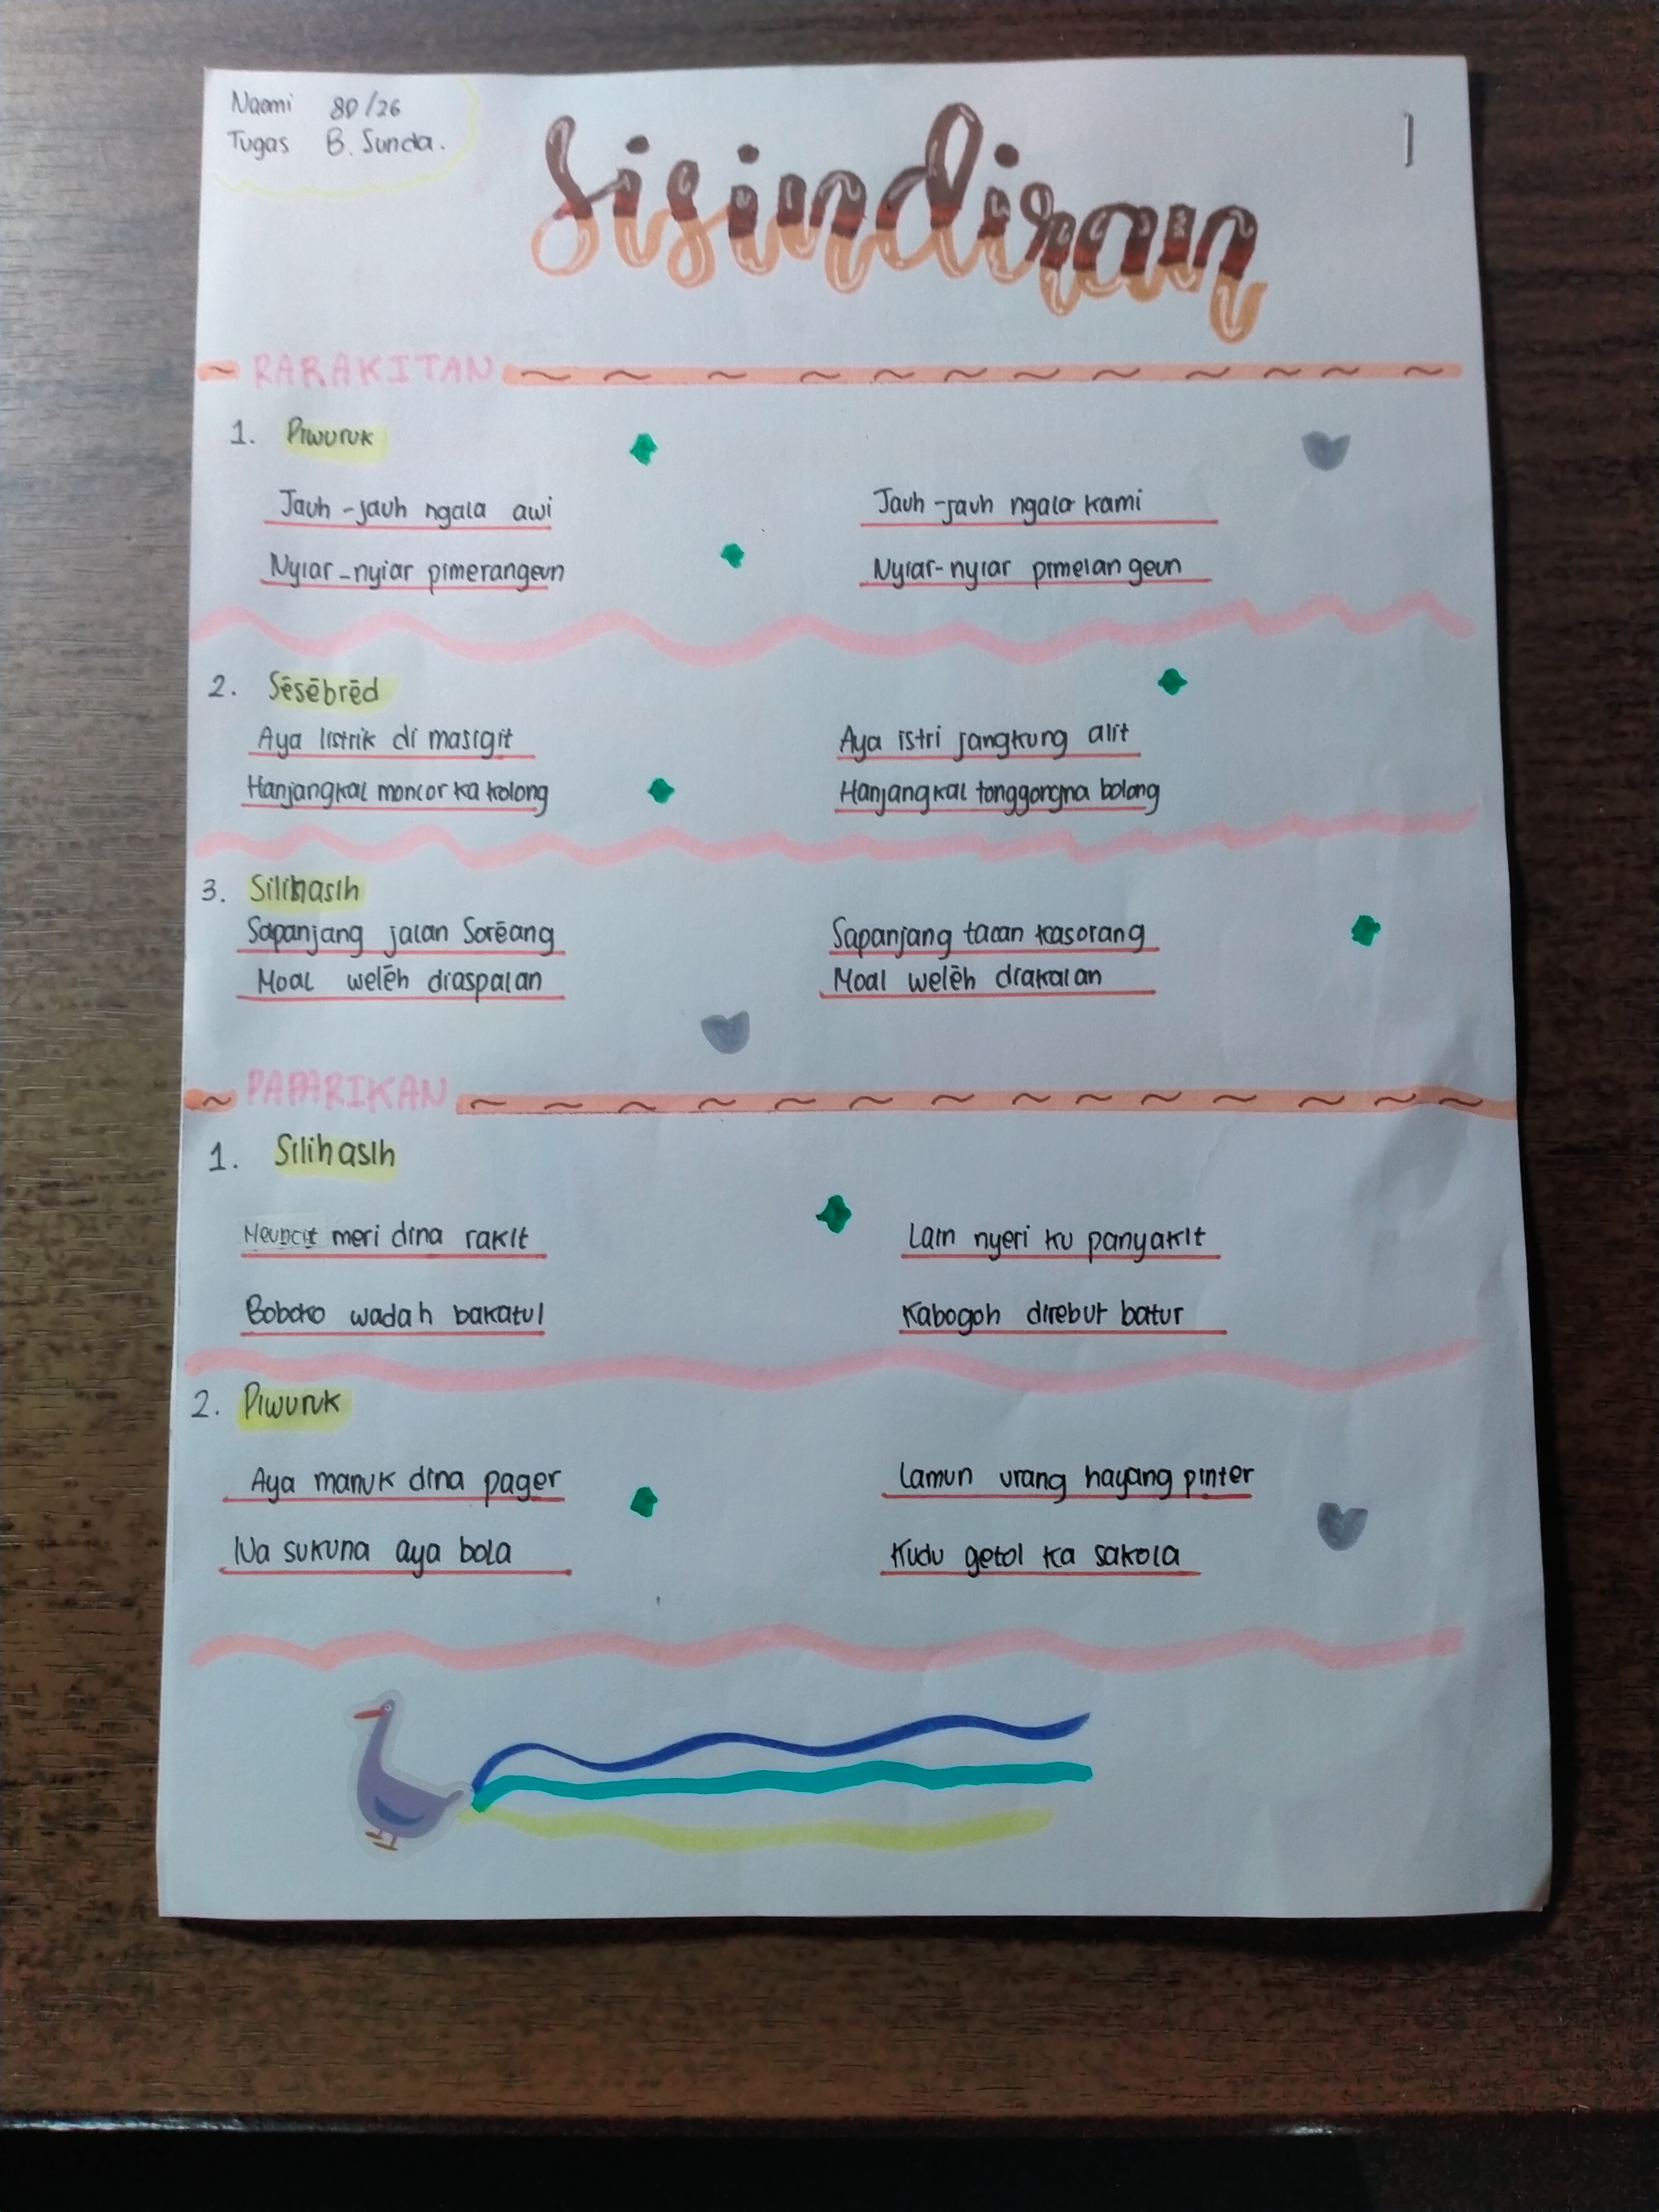 Naomi 8D/26
Tugas B. Sunda.
Sisindiran
RARAKITAN
1. Piwuruk
Jauh-jauh ngala awi
Nyiar-nyiar pimerangeun
Jauh-jauh ngala kami
Nyiar-nyiar pimelangeun
2. Sēsēbrēd
Aya listrik di masigit
Hanjangkal moncor ka kolong
Aya istri jangkung alit
Hanjangkal tonggongna bolong
3. Silihasih
Sapanjang jalan Sorēang
Moal welēh diaspalan
Sapanjang tacan kasorang
Moal welēh diakalan
PAPARIKAN
1. Silihasih
Meuncit meri dina rakit
Boboko wadah bakatul
Lain nyeri ku panyakit
Kabogoh direbut batur
2. Piwuruk
Aya manuk dina pager
Na sukuna aya bola
Lamun urang hayang pinter
Kudu getol ka sakola